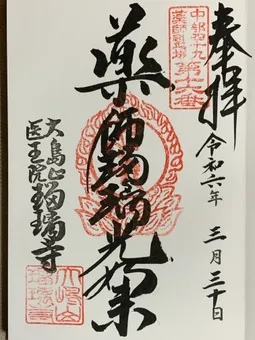 奉拝
令和六年 三月三十日
中部四十九
薬師霊場
第十六番
薬師瑠璃光如来
大島山
医王院
瑠璃寺
大嶋山
瑠璃寺